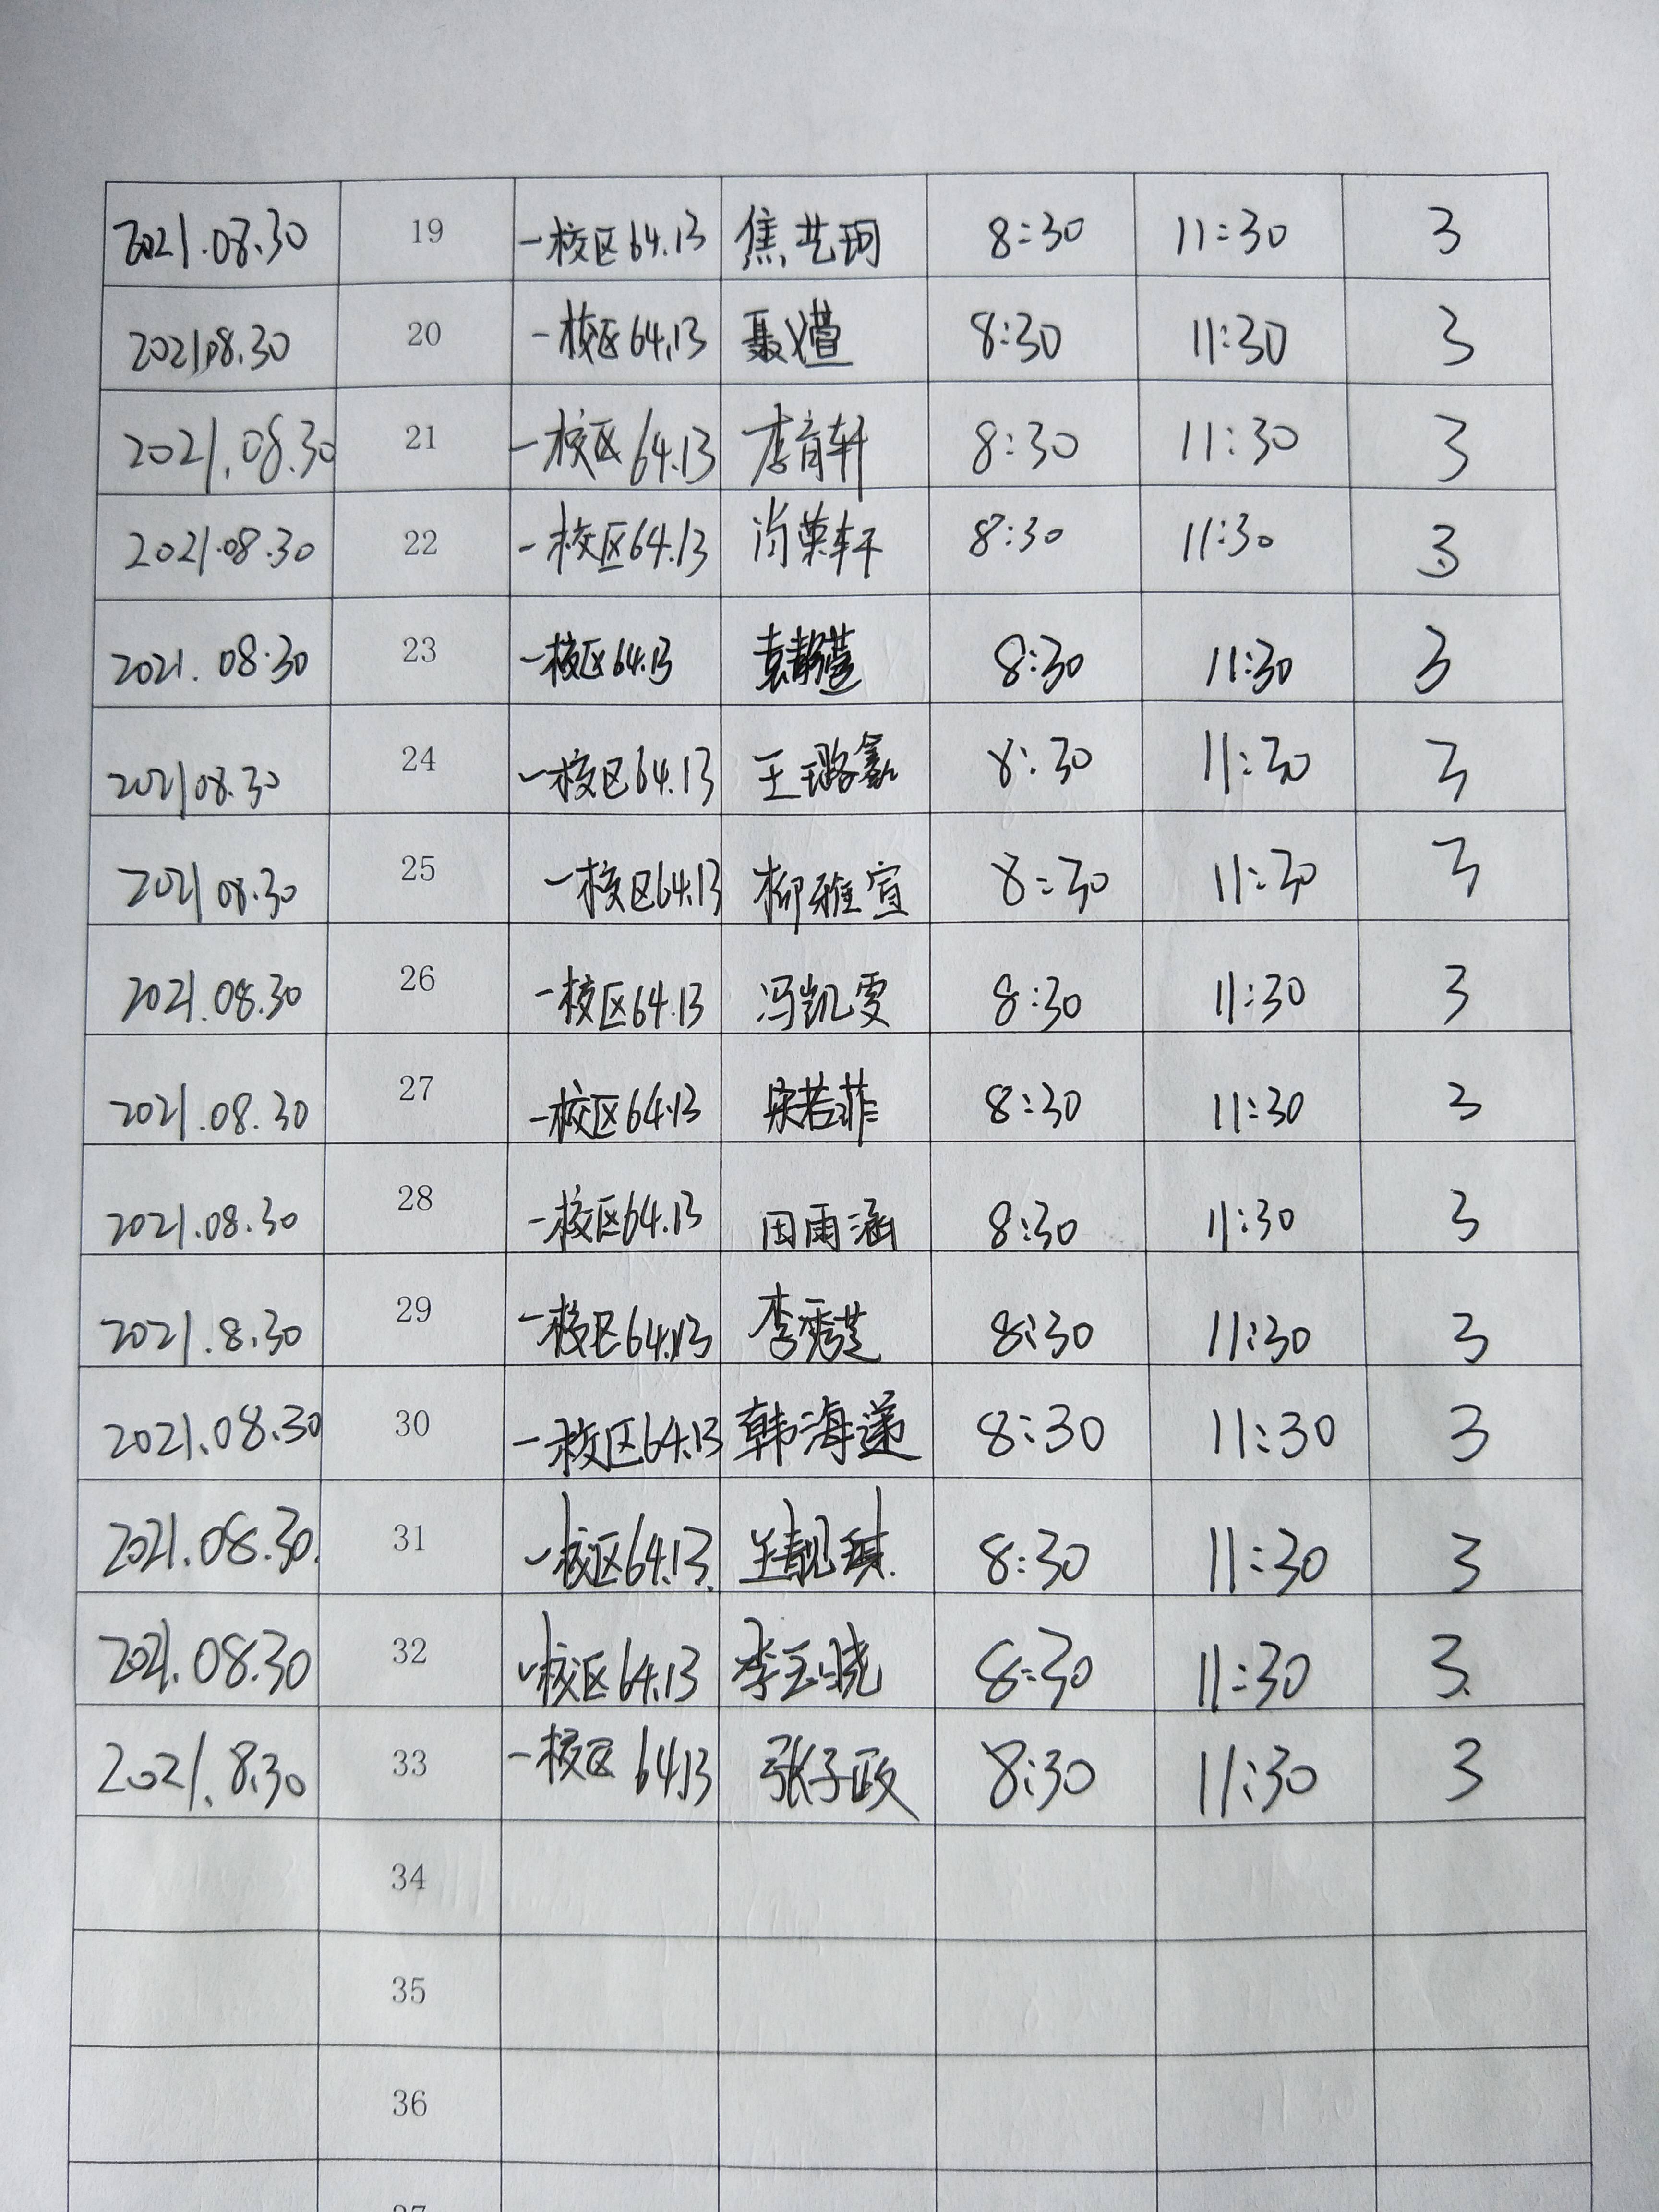 2021.08.30 19 一校区64.13 焦艺珂 8:30 11:30 3
2021.08.30 20 一校区64.13 8:30 11:30 3
2021.08.30 21 一校区64.13 李育轩 8:30 11:30 3
2021.08.30 22 一校区64.13 8:30 11:30 3
2021.08.30 23 一校区64.13 8:30 11:30 3
2021 08.30 24 一校区64.13 王璐鑫 8:30 11:30 3
2021 08.30 25 一校区64.13 柳雅宣 8:30 11:30 3
2021.08.30 26 一校区64.13 冯凯雯 8:30 11:30 3
2021.08.30 27 一校区64.13 宋若菲 8:30 11:30 3
2021.08.30 28 一校区64.13 田雨涵 8:30 11:30 3
2021.8.30 29 一校区64.13 李秀芝 8:30 11:30 3
2021.08.30 30 一校区64.13 韩海莲 8:30 11:30 3
2021.08.30. 31 一校区64.13. 王靓琪. 8:30 11:30 3
2021.08.30 32 一校区64.13 李玉晓 8:30 11:30 3.
2021.8.30 33 一校区 64.13 张子政 8:30 11:30 3
34
35
36